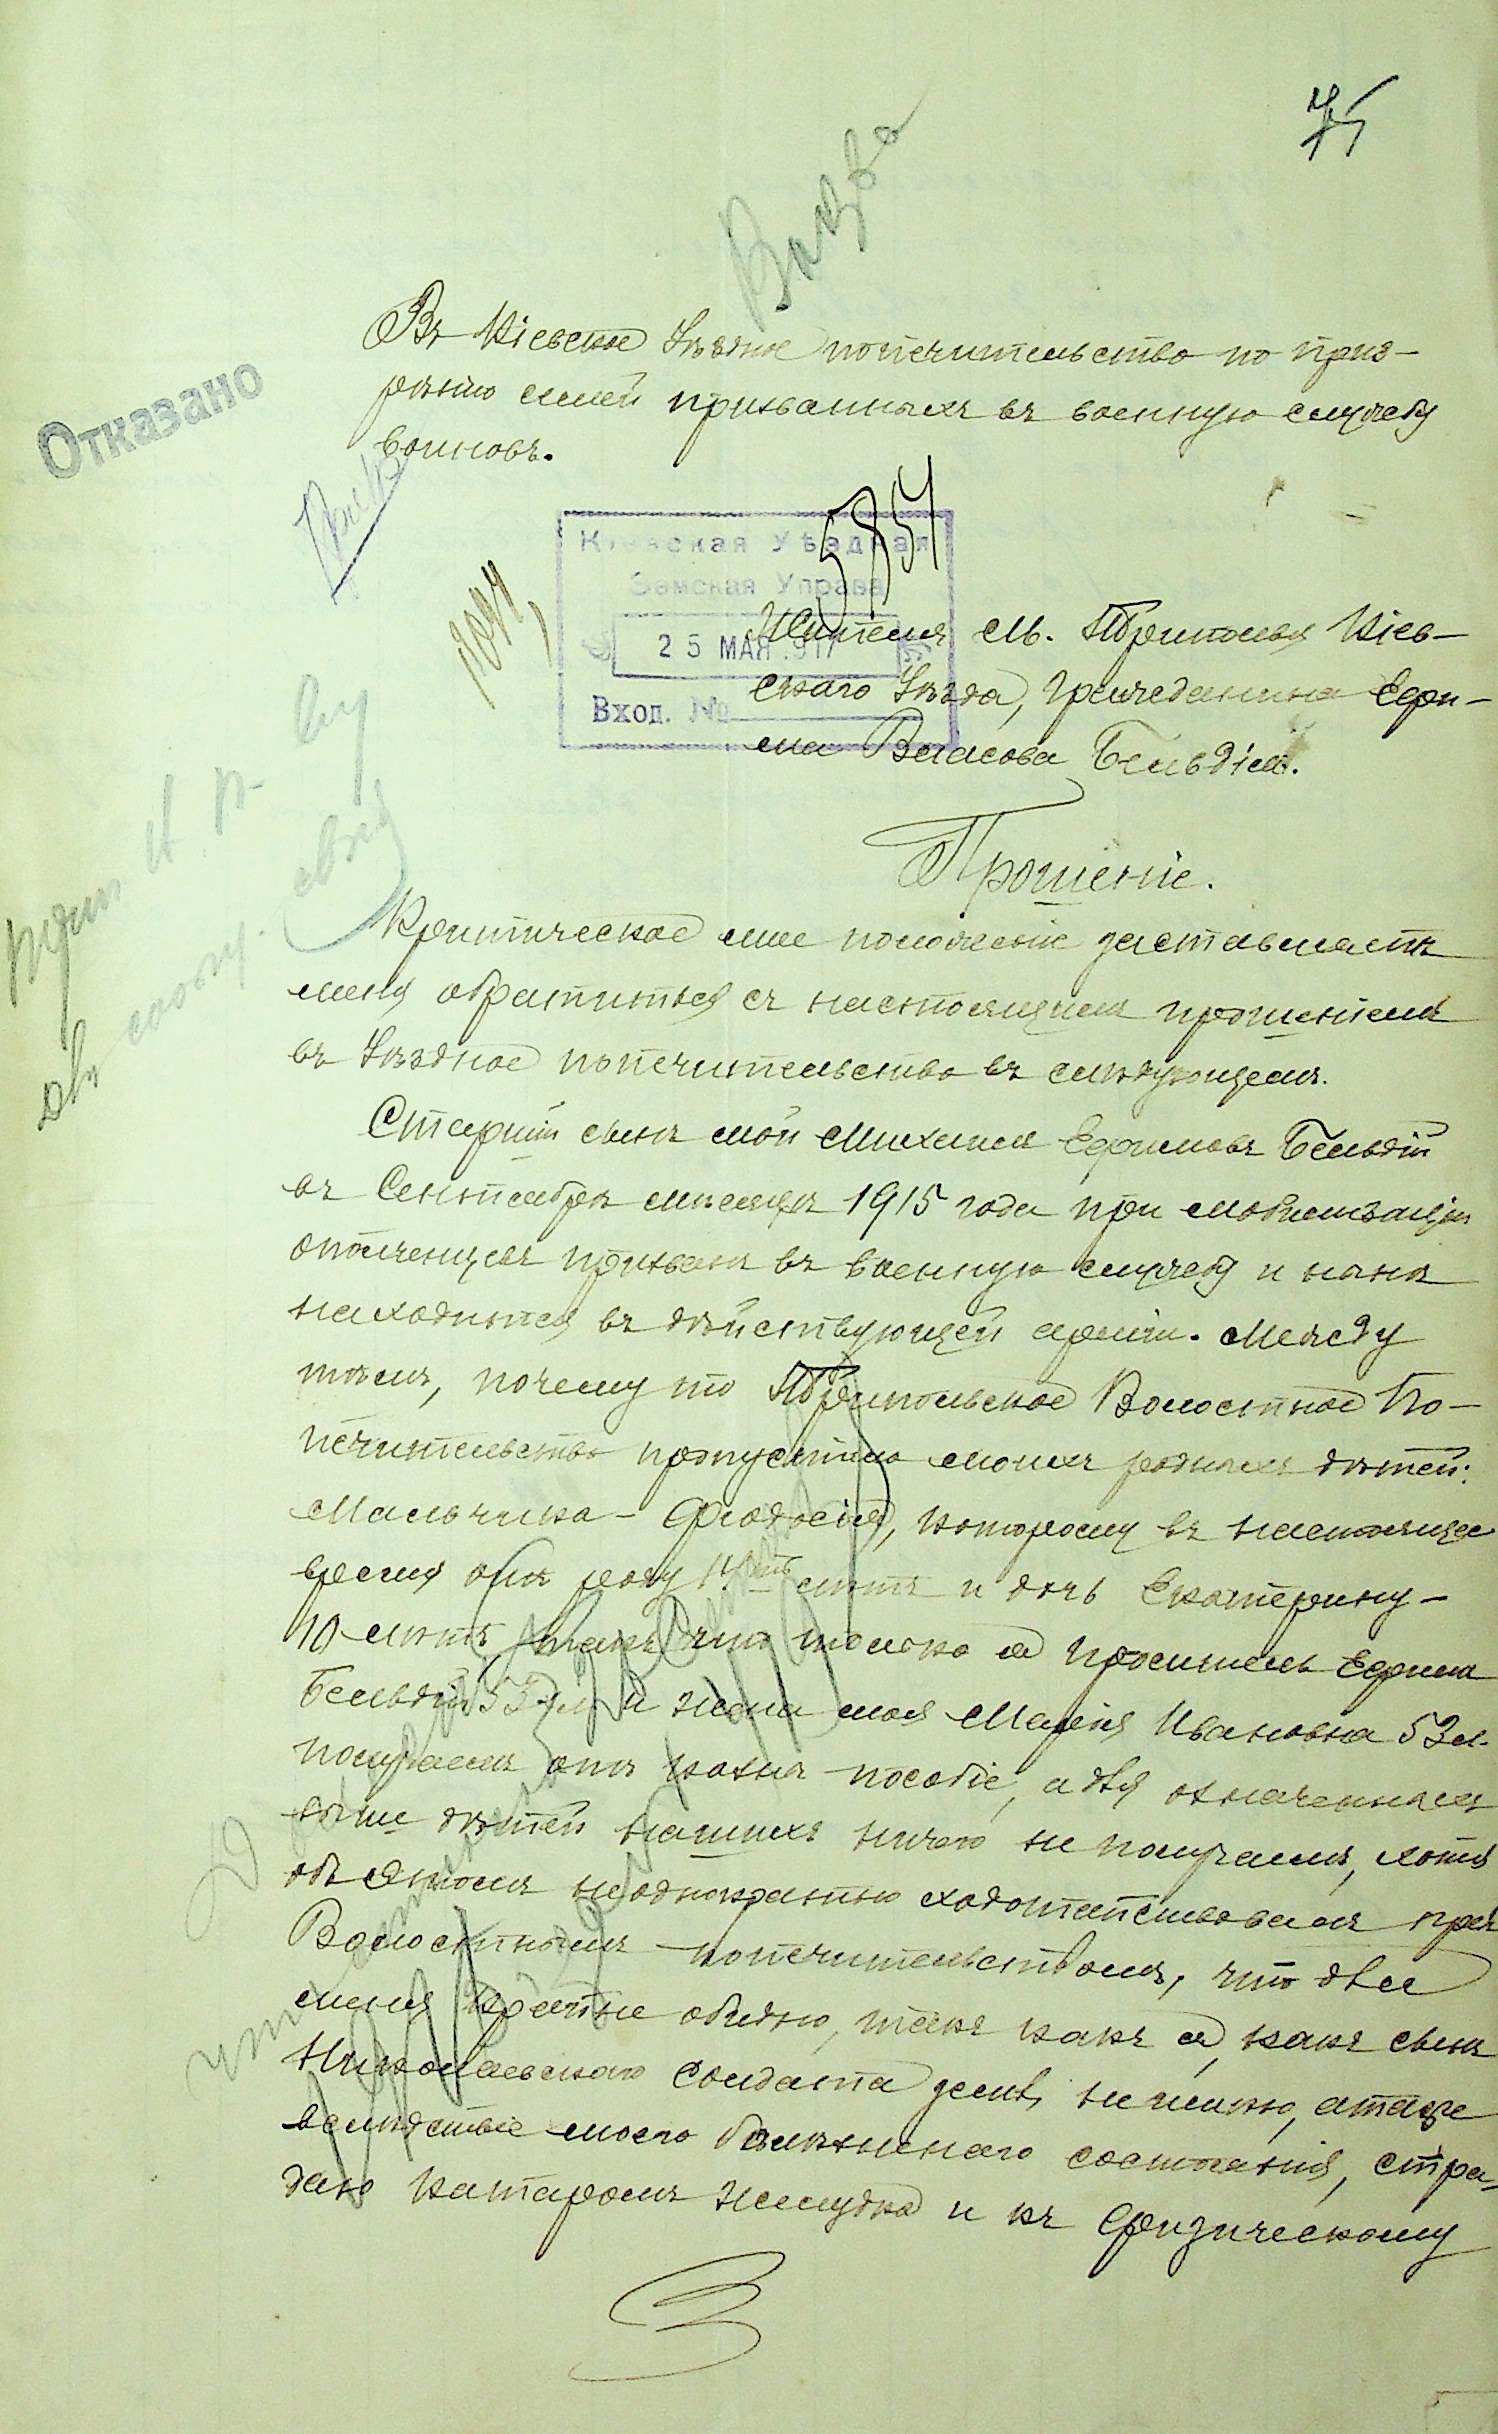 75
Въ Кіевское Уѣздное попечительство по приз-
рѣнію семей призванныхъ въ военную службу
воиновъ.
Отказано
5854
Кіевская Уѣздная
Земская Управа
25 МАЯ 1917
Вход. №
Жителя м. Триполья Кіев-
скаго Уѣзда, гражданина Ефи-
ма Власова Бельдія.
Прошеніе.
Критическое мое положеніе заставляетъ
меня обратиться съ настоящимъ прошеніемъ
въ Уѣздное попечительство въ слѣдующемъ.
Старшій сынъ мой Михаилъ Ефимовъ Бельдій
въ Сентябрѣ мѣсяцѣ 1915 года при мобилизаціи
ополченцевъ призванъ въ военную службу и нынѣ
находится въ дѣйствующей арміи. Между
тѣмъ, почему то Трипольское Волостное По-
печительство пропустило моихъ родныхъ дѣтей:
Мальчика - Феодосія, которому въ настоящее
время отъ роду лѣтъ и дочь Екатерину -
10 лѣтъ, такъ что только я проситель Ефимъ
Бельдій 53 л. и жена моя Марія Ивановна 53 л.
получаемъ отъ казны пособіе, а для означенныхъ
выше дѣтей нашихъ ничего не получаемъ, хотя
объ этомъ неоднократно ходатайствовалъ предъ
Волостнымъ попечительствомъ, что для
меня крайне обидно, такъ какъ я, какъ сынъ
Николаевскаго солдата земли не имѣю, а также
вслѣдствіе моего болѣзненнаго состоянія, стра-
даю катаромъ желудка и къ физическому